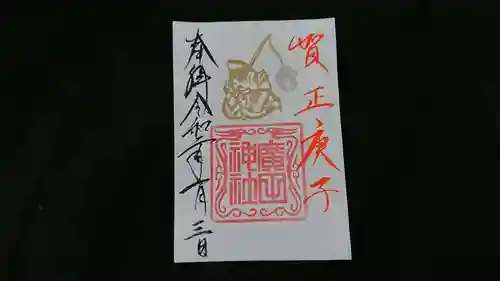 賀正庚子
廣田神社
奉拝令和二年一月三日